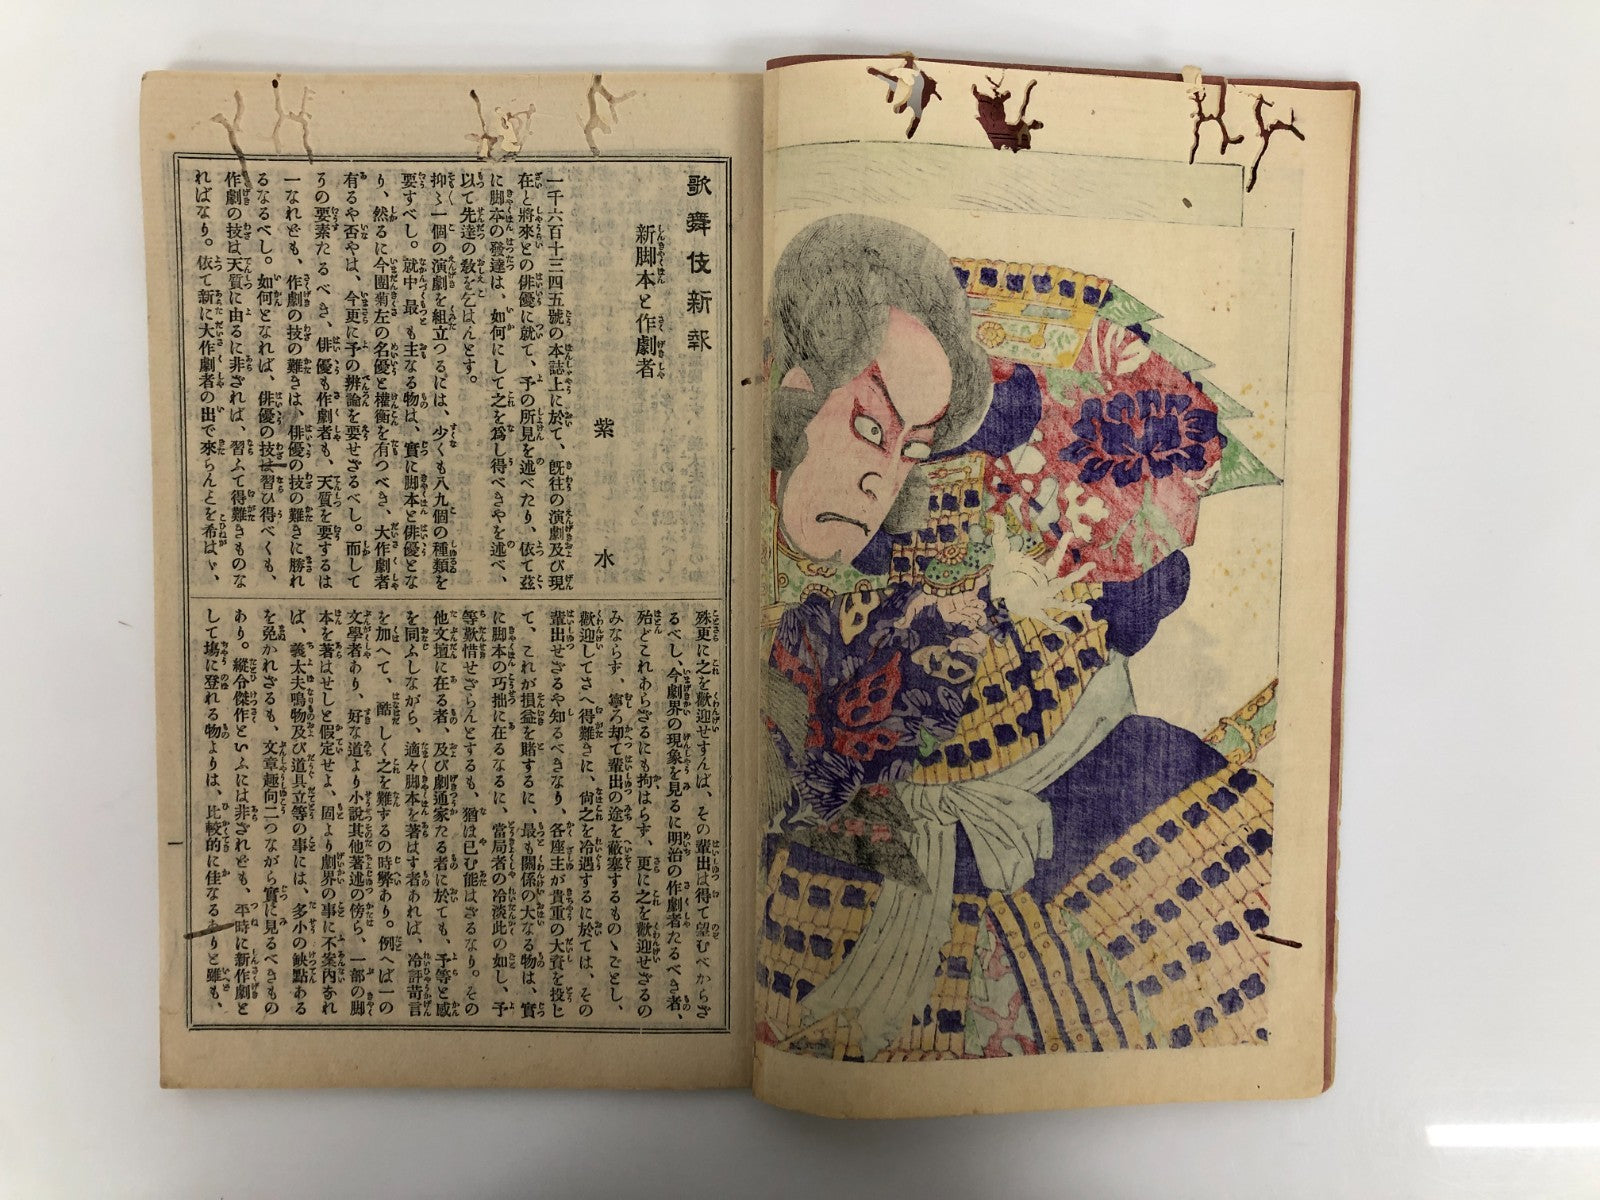 歌舞伎新報
新脚本と作劇者
紫水
一千六百十三四五號の本誌上に於て、既往の演劇及び現
在と將來との俳優に就て、予の所見を述べたり、依て茲
に脚本の發達は、如何にして之を爲し得べきやを述べ、
以て先達の敎を乞はんとす。
抑〻一個の演劇を組立つるには、少くも八九個の種類を
要すべし。就中最も主なる物は、實に脚本と俳優とな
り、然るに今團菊左の名優と權衡を有つべき、大作劇者
有るや否やは、今更に予の辨論を要せざるべし。而して
らの要素たるべき、俳優も作劇者も、天質を要するは
一なれども、作劇の技の難きは、俳優の技の難きに勝れ
るなるべし。如何となれば、俳優の技は習ひ得べくも、
作劇の技は天質に由るに非ざれば、習ふて得難きものな
ればなり。依て新に大作劇者の出で來らんとを希はゞ、
殊更に之を歡迎せずんば、その輩出は得て望むべからざ
るべし、今劇界の現象を見るに明治の作劇者たるべき者、
殆どこれあらざるにも拘はらず、更に之を歡迎せざるの
みならず、寧ろ却て輩出の途を蔽塞するものゝごとし、
歡迎してさへ得難きに、尙之を冷遇するに於ては、その
輩出せざるや知るべきなり、各座主が貴重の大資を投じ
て、これが損益を賭するに、最も關係の大なる物は、實
に脚本の巧拙に在るなるに、當局者の冷淡此の如し、予
等歎惜せざらんとするも、猶は已む能はざるなり。その
他文壇に在る者、及び劇通家たる者に於ても、予等と感
を同ふしながら、適々脚本を著はす者あれば、冷評苛言
を加へて、酷しく之を難するの時弊あり。例へば一の
文學者あり、好な道より小說其他著述の傍ら、一部の脚
本を著はせしと假定せよ、固より劇界の事に不案內なれ
ば、義太夫鳴物及び道具立等の事には、多小の缺點ある
を免かれざるも、文章趣向二つながら實に見るべきもの
あり。縱令傑作といふには非ざれども、平時に新作劇と
して塲に登れる物よりは、比較的に佳なるありと雖も、
一